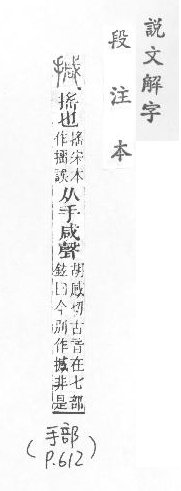 說文解字
段注本
㨔
搖也 搖宋本作誤 从手咸聲 胡感切古音在七部鉉曰今別作撼非是
(手部
P.612)